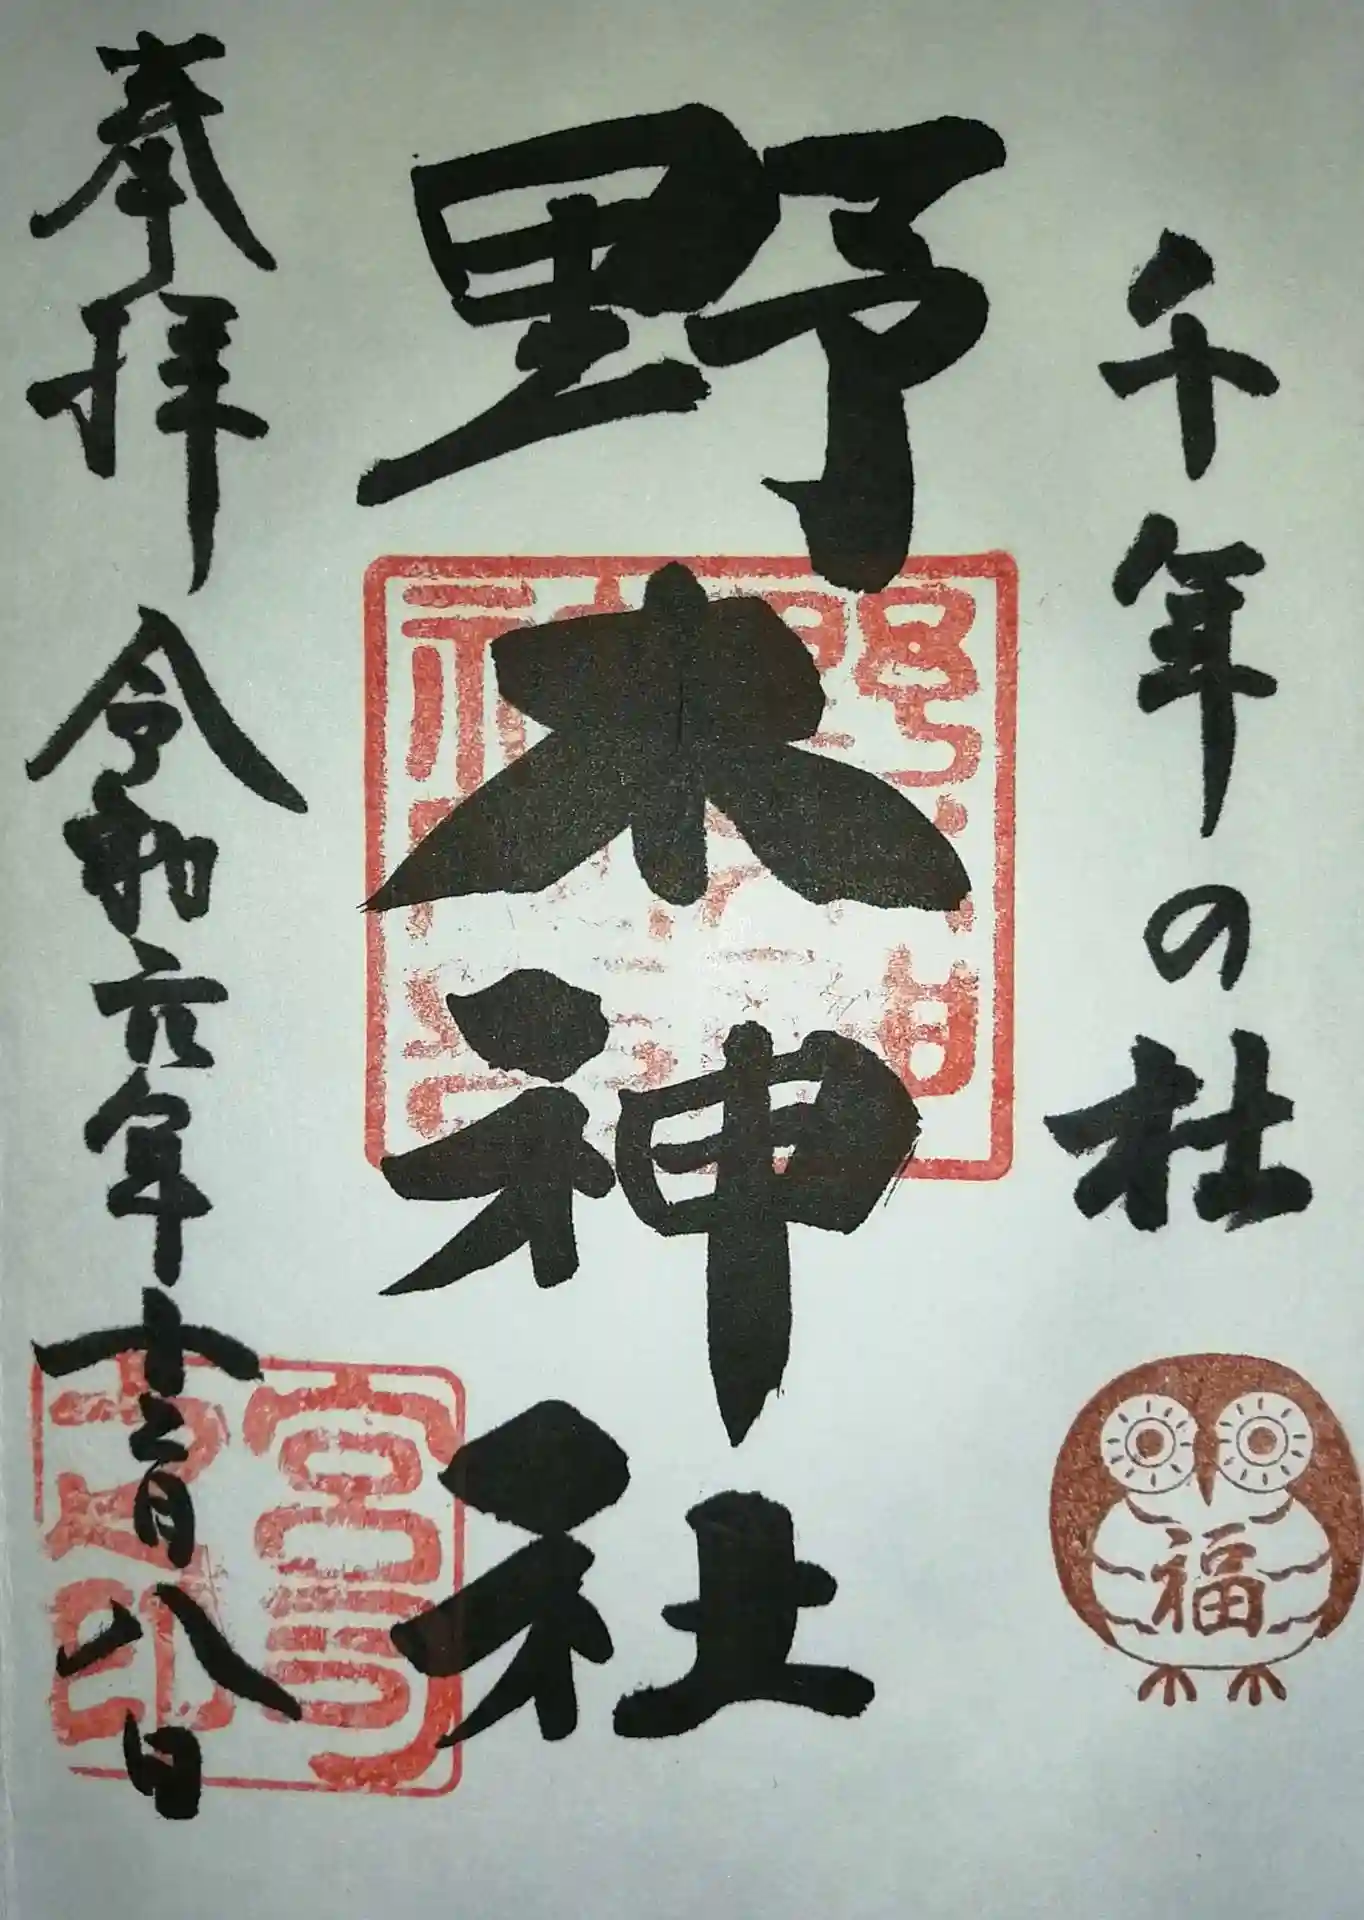 千年の杜
福
野木神社
奉拝 令和六年十二月八日